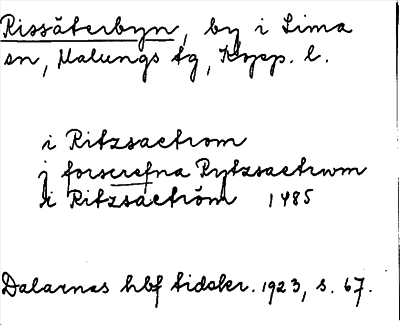 Rissäterbyn, by i Lima
sn, Malungs tg, Kopp. l.
i Ritzsaetrom
j forscrefna Rytzsaetrwm
i Ritzsaetrŏm 1485
Dalarnas hbf tidskr. 1923, s. 67.